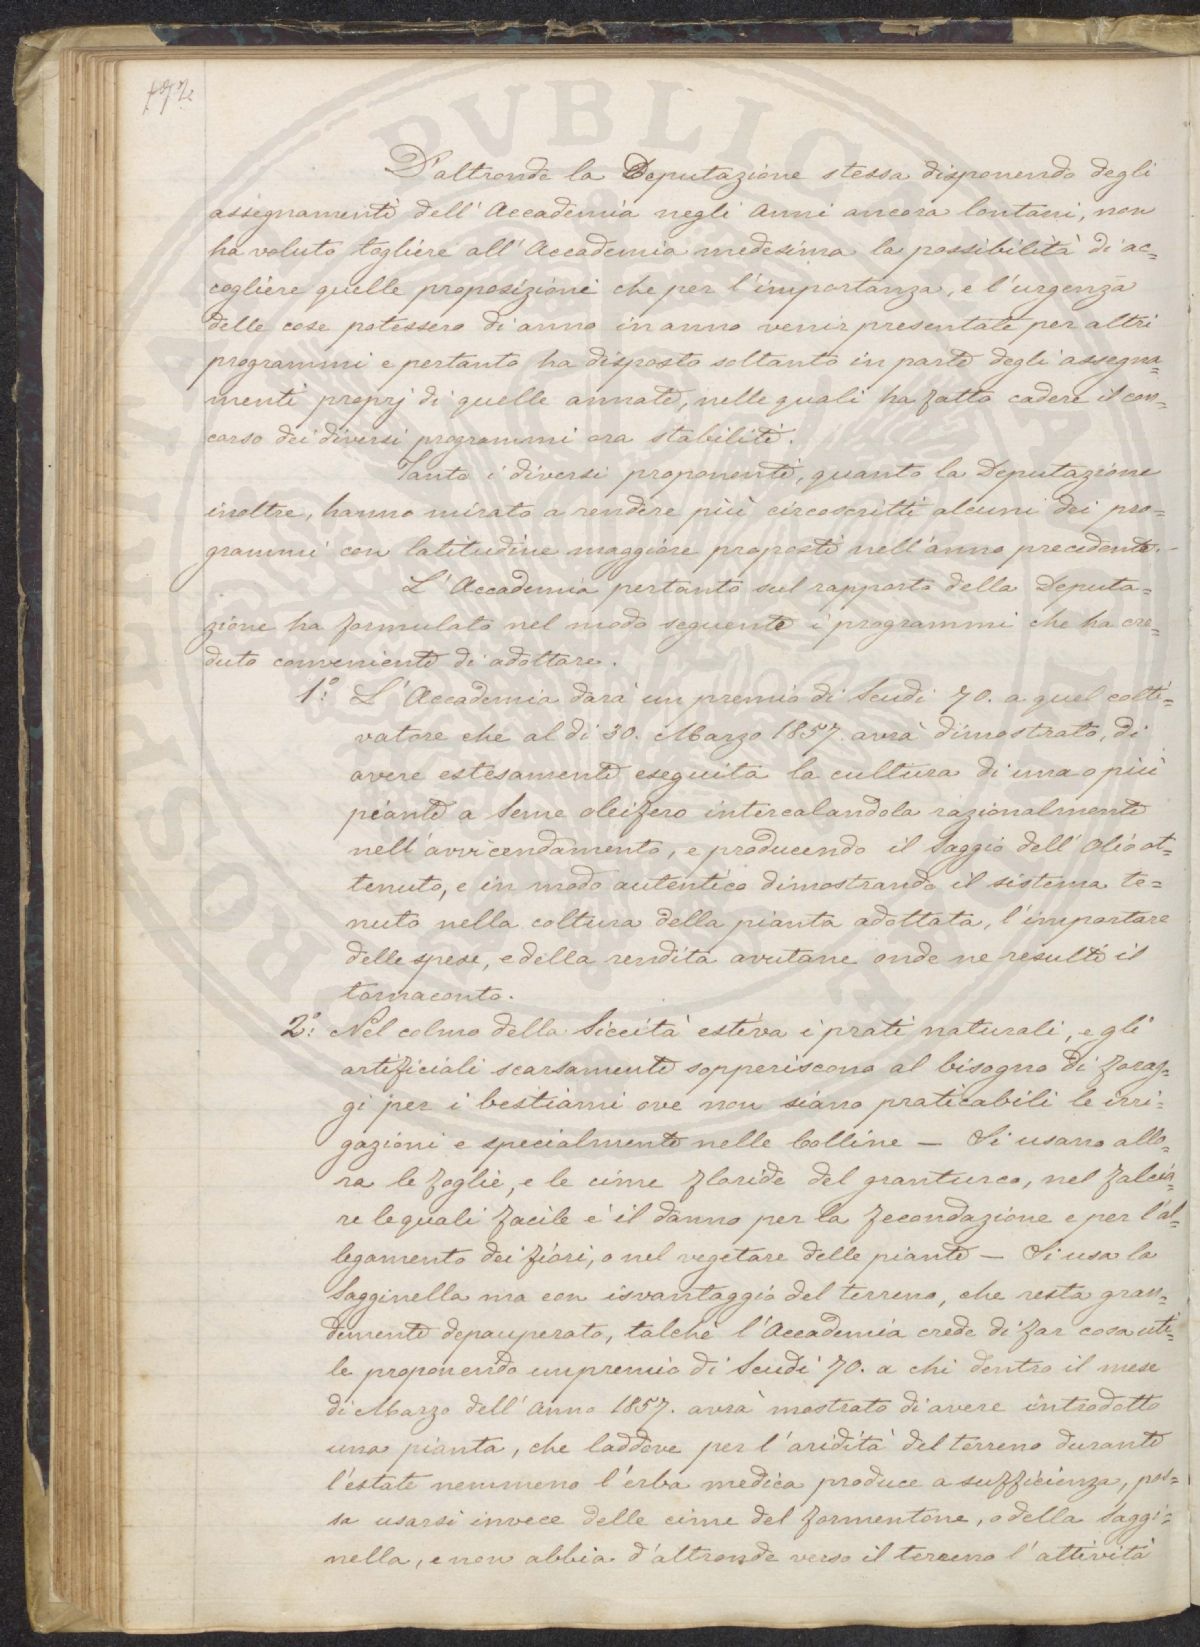 172
D'altronde la Deputazione stessa disponendo degli
assegnamenti dell'Accademia negli Anni ancora lontani, non
ha voluto togliere all'Accademia medesima la possibilità di ac=
cogliere quelle proposizioni che per l'importanza, e l'urgenza
delle cose potessero di anno in anno venir presentate per altri
programmi e pertanto ha disposto soltanto in parte degli assegna=
menti proprj di quelle annate, nelle quali ha fatto cadere il con=
corso dei diversi programmi ora stabiliti.
Tanto i diversi proponenti, quanto la Deputazione
inoltre, hanno mirato a rendere più circoscritti alcuni dei pro=
grammi con latitudine maggiore proposti nell'anno precedente.-
L'Accademia pertanto sul rapporto della Deputa=
zione ha formulato nel modo seguente i programmi che ha cre=
duto conveniente di adottare.
1º: L'Accademia darà un premio di Scudi 70. a quel colti=
vatore che al dì 30. Marzo 1857. avrà dimostrato, di
avere estesamente eseguita la cultura di una o più
piante a Seme oleifero intercalandola razionalmente
nell'avvicendamento, e producendo il Saggio dell'Olio ot=
tenuto, e in modo autentico dimostrando il sistema te=
nuto nella coltura della pianta adottata, l'importare
delle spese, e della rendita avutane onde ne resulti il
tornaconto.
2º: Nel colmo della Siccità estiva i prati naturali, e gli
artificiali scarsamente sopperiscono al bisogno di forag=
gi per i bestiami ove non siano praticabili le irri=
gazioni e specialmente nelle Colline — Si usano allo=
ra le foglie, e le cime floride del granturco, nel falcia=
re le quali facile è il danno per la fecondazione e per l'al=
legamento dei fiori, o nel vegetare delle piante — Si usa la
Sagginella ma con isvantaggio del terreno, che resta gran=
demente depauperato, talchè l'Accademia crede di far cosa uti=
le proponendo un premio di Scudi 70. a chi dentro il mese
di Marzo dell'Anno 1857. avrà mostrato di avere introdotto
una pianta, che laddove per l'aridità del terreno durante
l'estate nemmeno l'erba medica produce a sufficienza, pos=
sa usarsi invece delle cime del formentone, o della Saggi=
nella, e non abbia d'altronde verso il terreno l'attività
PVBLICA
PROSPERITA